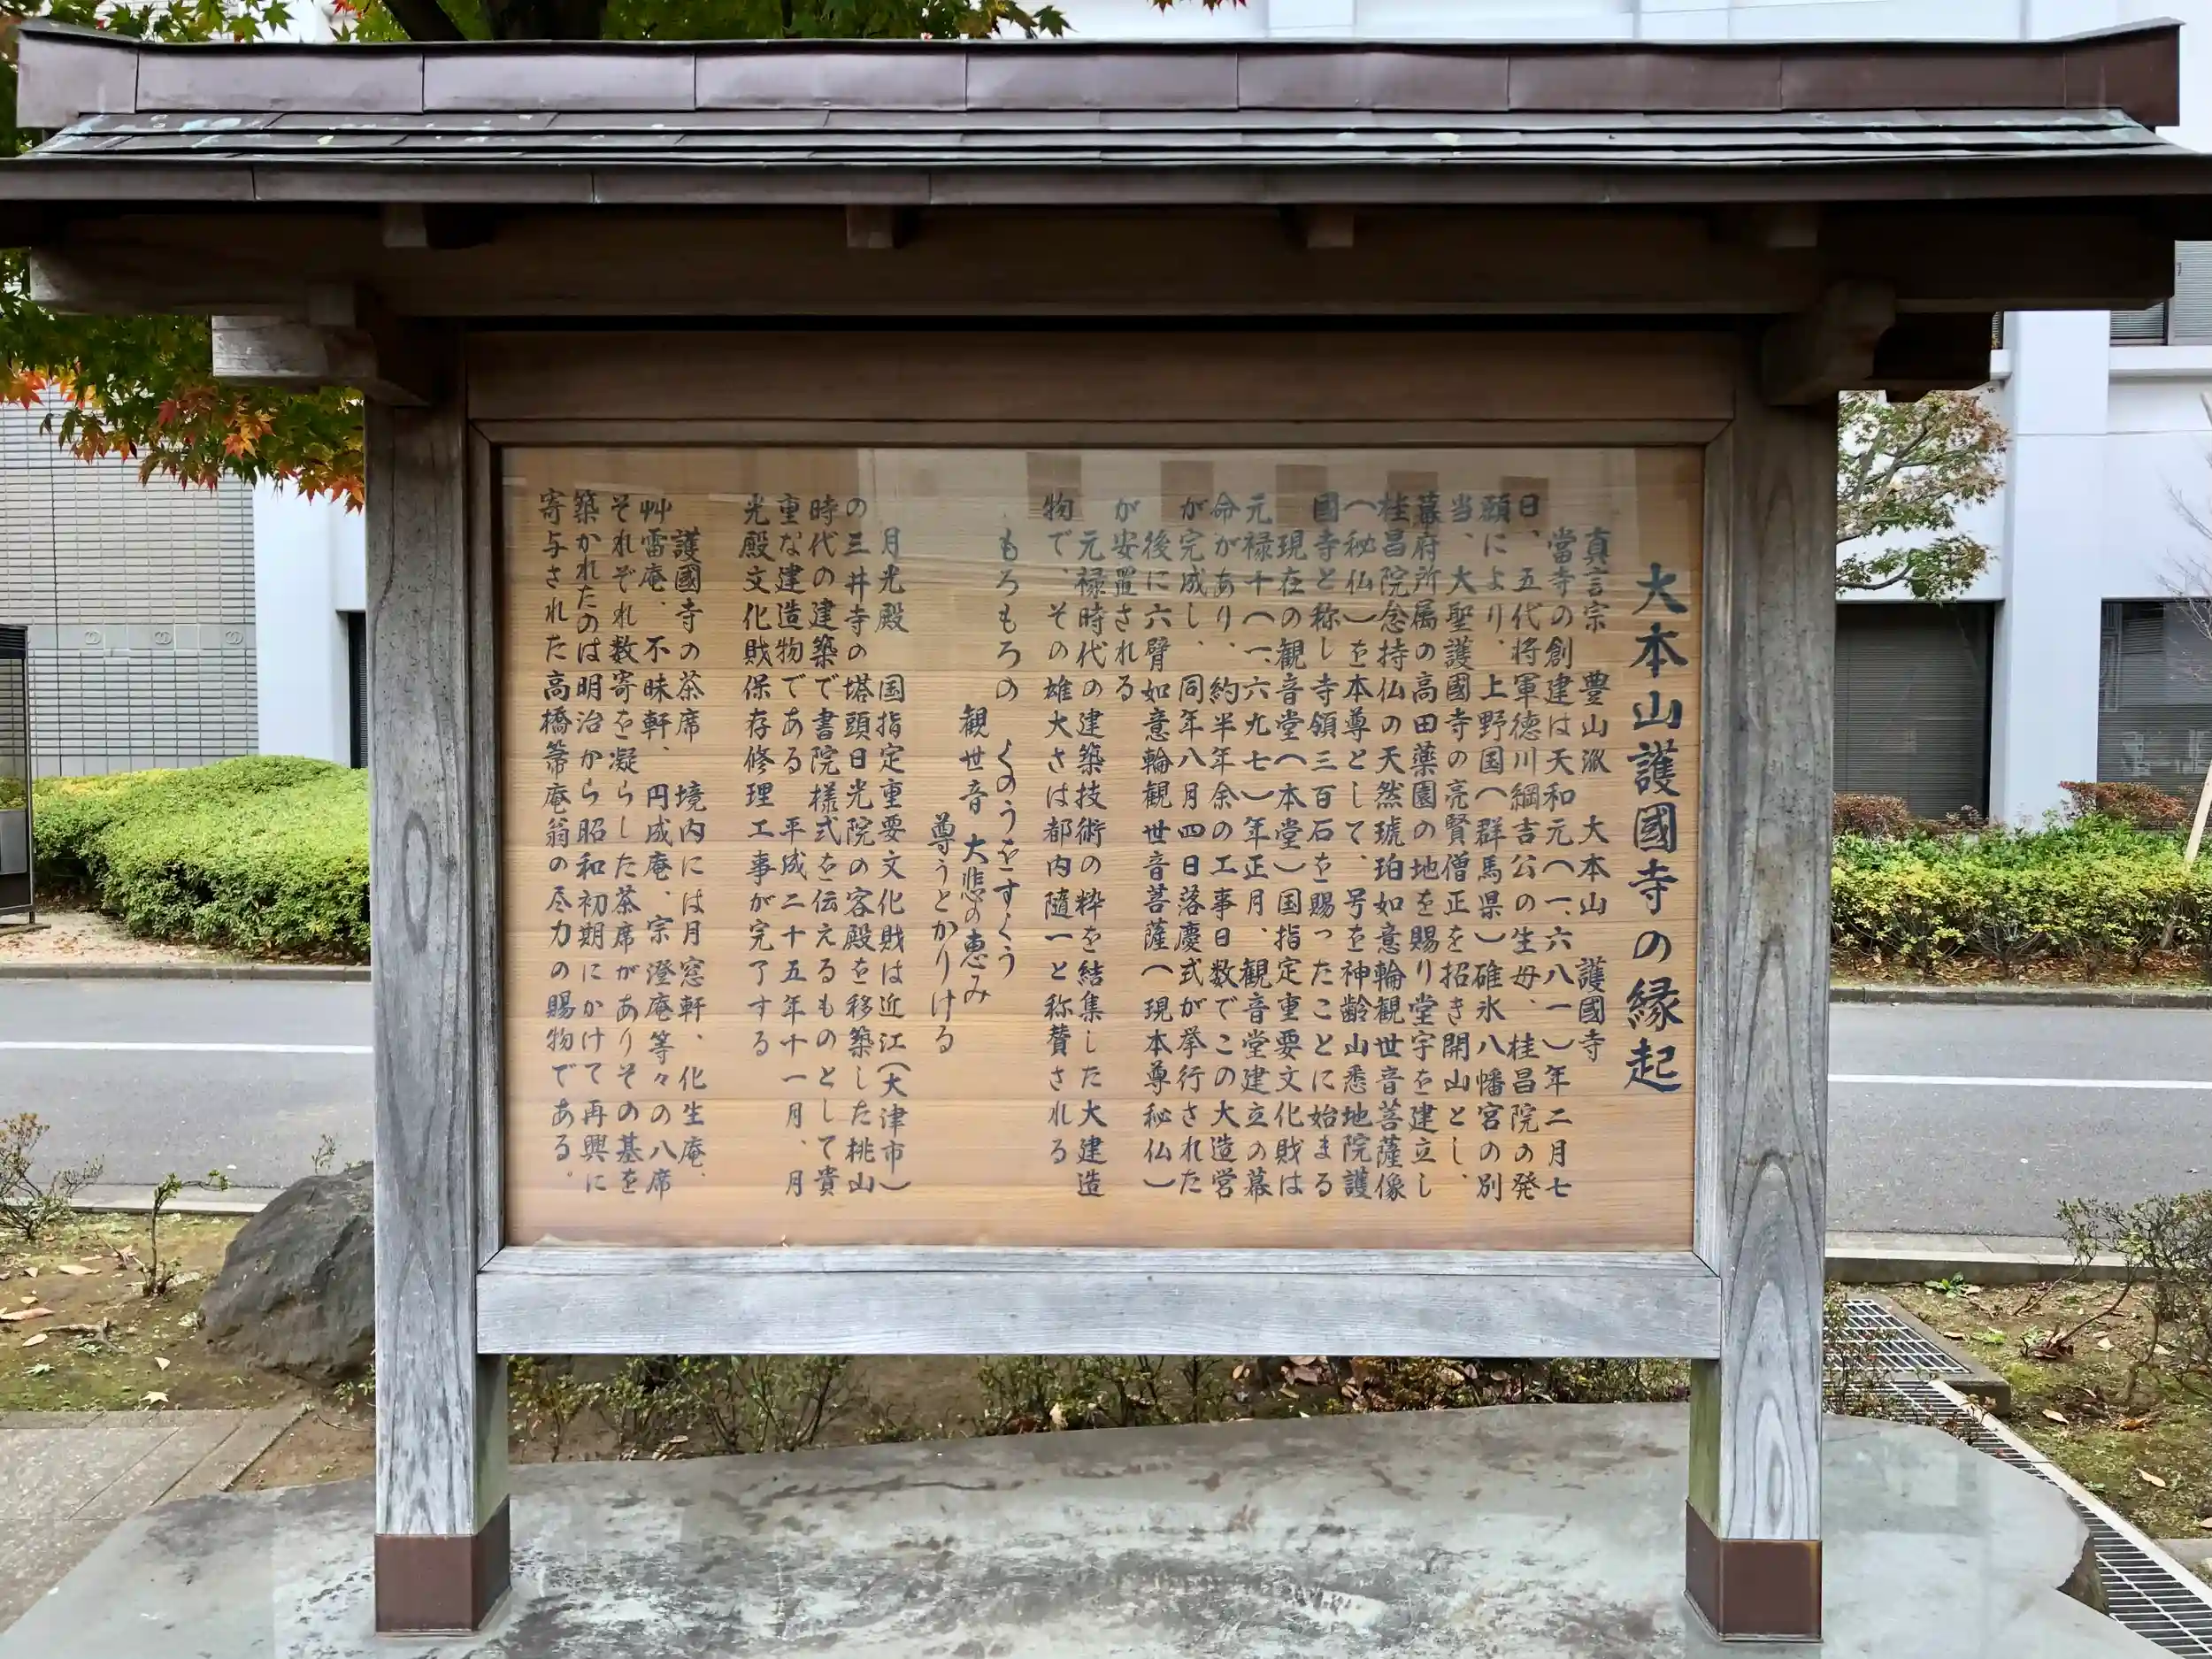 大本山護國寺の縁起
真言宗　豊山派　大本山　護國寺
當寺の創建は天和元(一、六八一)年二月七
日、五代将軍徳川綱吉公の生母、桂昌院の発
願により、上野国(群馬県)碓氷八幡宮の別
当、大聖護國寺の亮賢僧正を招き開山とし、
幕府所属の高田薬園の地を賜り堂宇を建立し
桂昌院念持仏の天然琥珀如意輪観世音菩薩像
(秘仏)を本尊として、号を神齢山悉地院護
國寺と称し寺領三百石を賜ったことに始まる
現在の観音堂(本堂)国指定重要文化財は
元禄十(一、六九七)年正月、観音堂建立の幕
命があり、約半年余の工事日数でこの大造営
が完成し、同年八月四日落慶式が挙行された
後に六臂如意輪観世音菩薩(現本尊秘仏)
が安置される
元禄時代の建築技術の粋を結集した大建造
物で、その雄大さは都内随一と称賛される
もろもろの　くのうをすくう
観世音　大悲の恵み
尊うとかりける
月光殿　国指定重要文化財は近江(大津市)
の三井寺の塔頭日光院の客殿を移築した桃山
時代の建築で書院様式を伝えるものとして貴
重な建造物である　平成二十五年十一月、月
光殿文化財保存修理工事が完了する
護國寺の茶席　境内には月窓軒、化生庵、
艸雷庵、不昧軒、円成庵、宗澄庵等々の八席
それぞれ数寄を凝らした茶席がありその基を
築かれたのは明治から昭和初期にかけて再興に
寄与された高橋箒庵翁の尽力の賜物である。